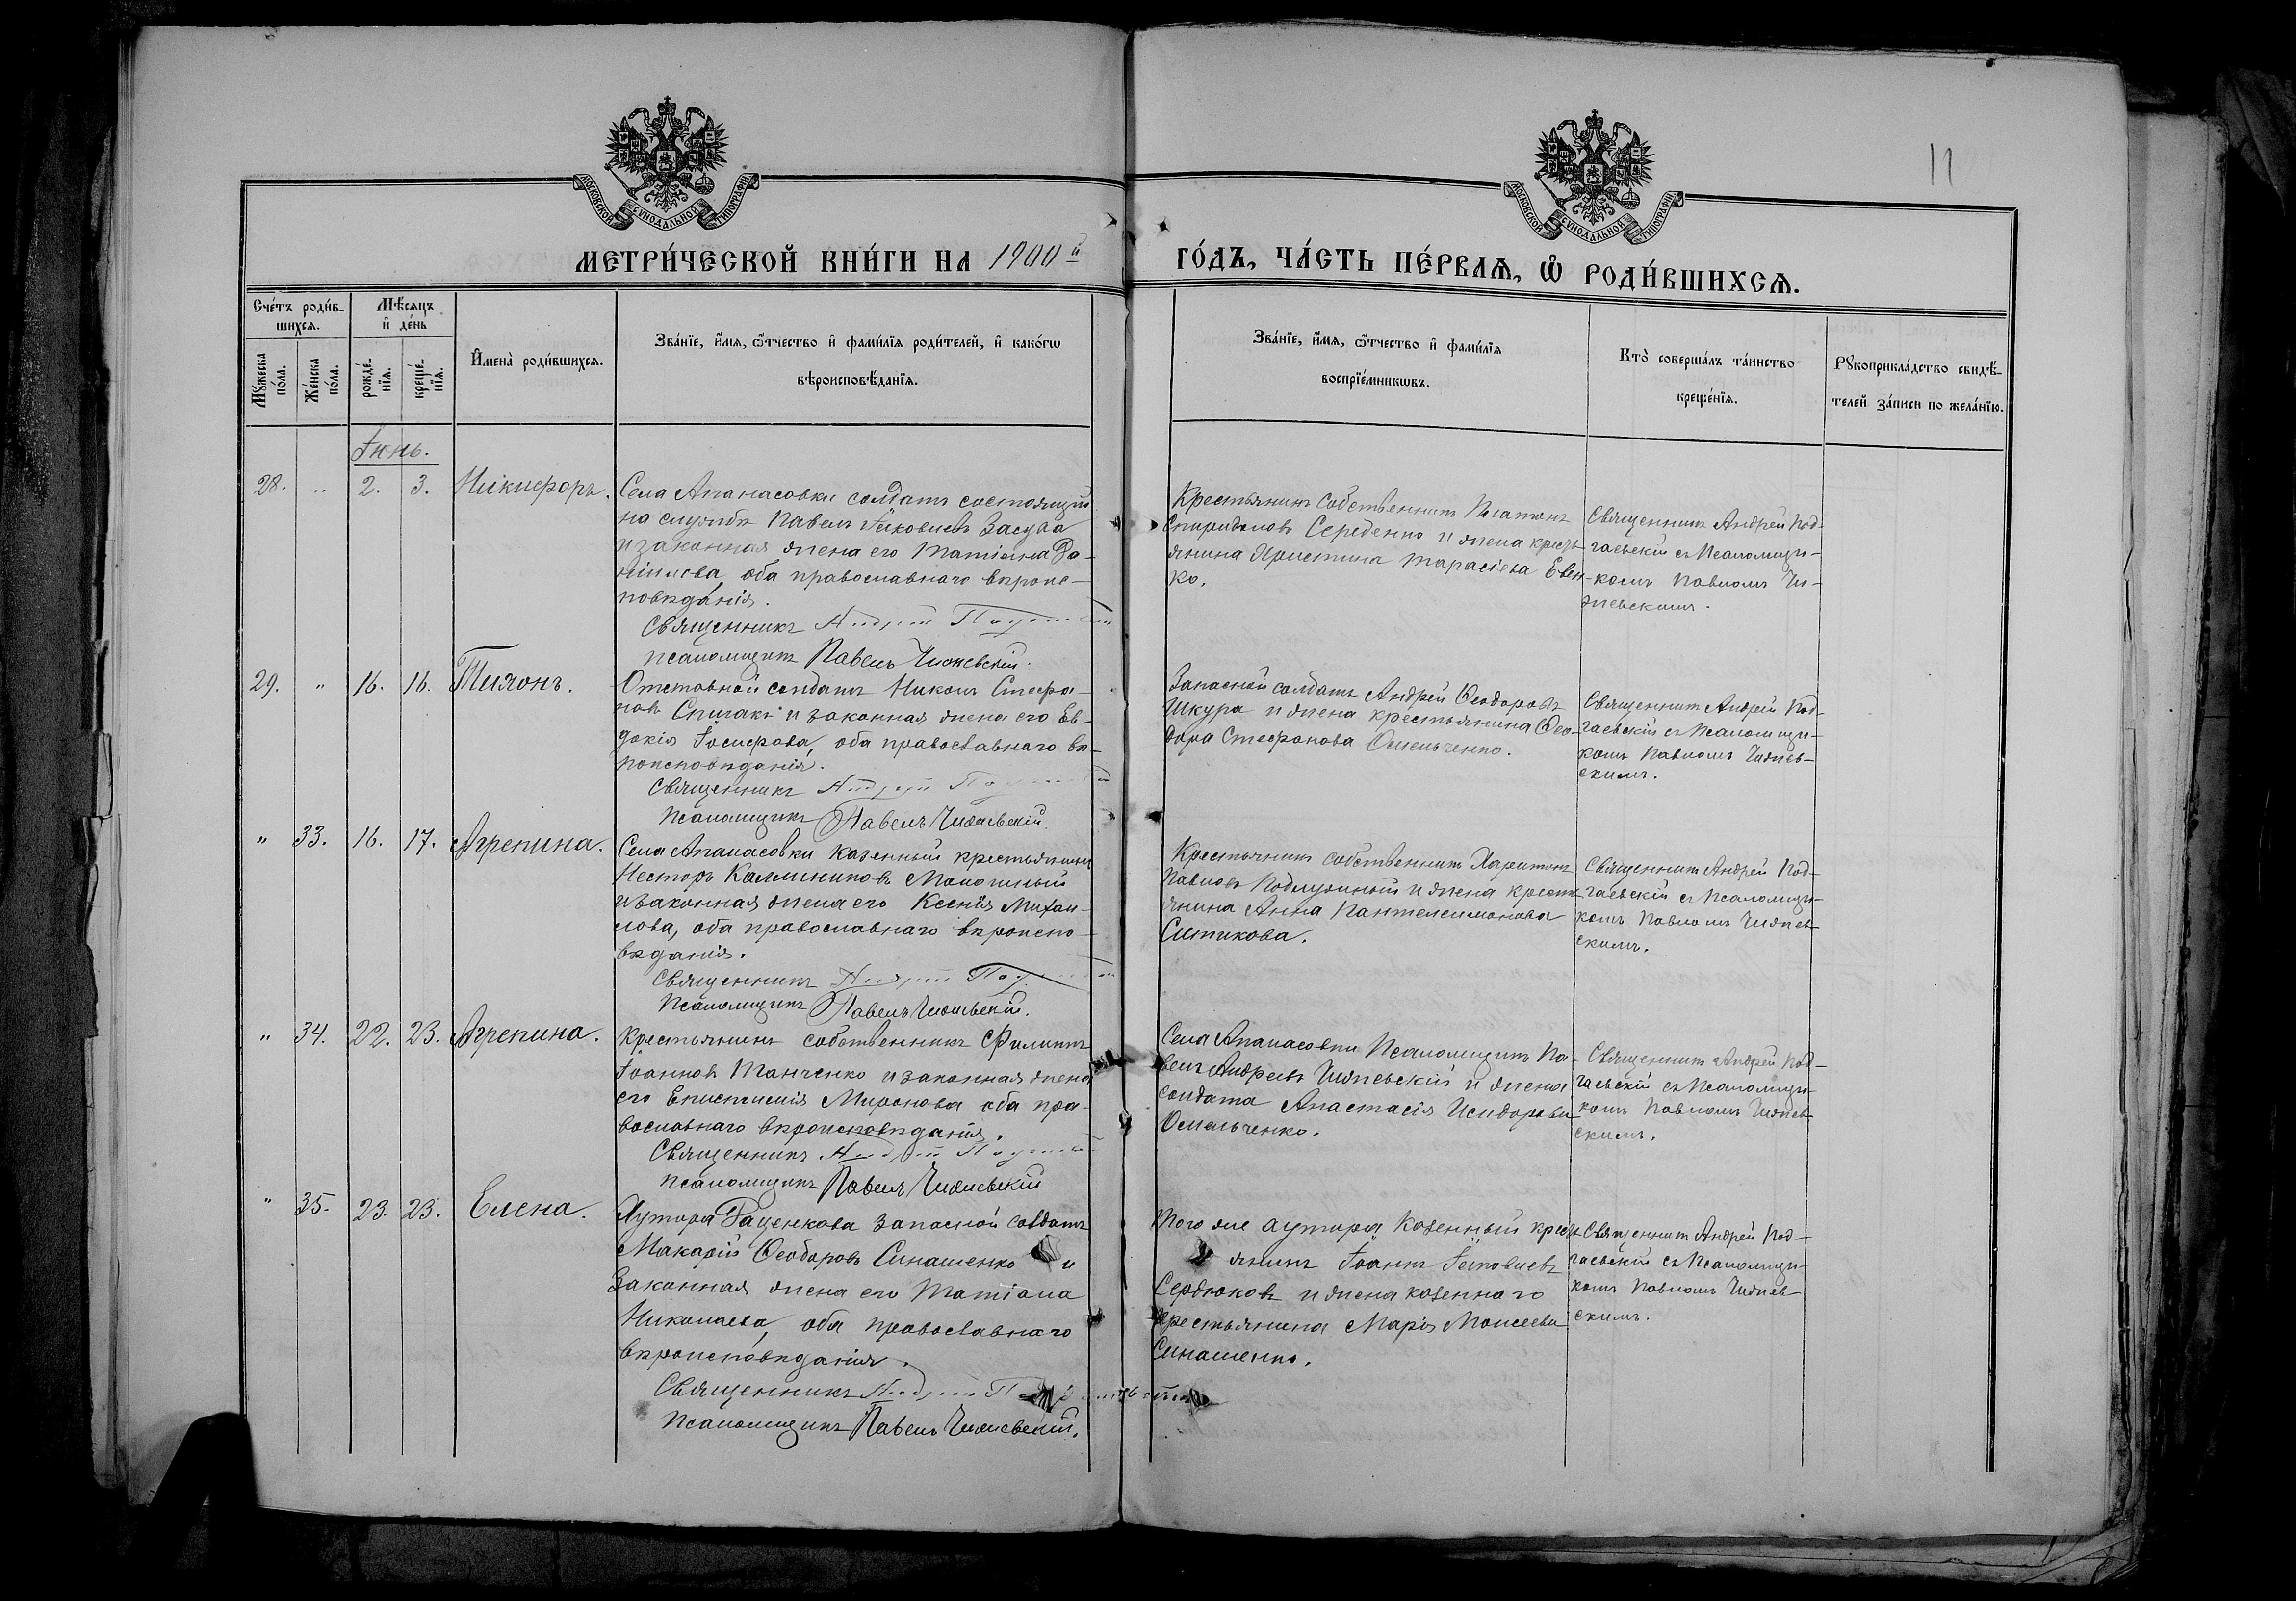 11
МОСКОВСКОЙ СѴНОДАЛЬНОЙ ТИПОГРАФІИ
МОСКОВСКОЙ СѴНОДАЛЬНОЙ ТИПОГРАФІИ
МЕТРИ́ЧЕСКОЙ КНИ́ГИ НА 1900й
ГО́ДЪ, ЧА́СТЬ ПЕ́РВАѦ, Ѽ РОДИ́ВШИХСѦ.
Сче́тъ роди́в-
шихсѧ.
Мѣ́сѧцъ
и҆ де́нь
Мꙋжеска
по́ла.
Же́нска
по́ла.
рожде́-
нїѧ.
креще́-
нїѧ.
И҆мена̀ роди́вшихсѧ.
Зва́нїе, и҆́мѧ, ѻ҆́тчество и҆ фами́лїѧ роди́телей, и҆ како́гѡ
вѣроисповѣ́данїѧ.
Зва́нїе, и҆́мѧ, ѻ҆́тчество и҆ фами́лїѧ
воспрїе́мникѡвъ.
Кто̀ соверша́лъ та́инство
креще́нїѧ.
Рꙋкоприкла́дство свидѣ́-
телей за́писи по жела́нїю.
Іюнь.
28. „ 2. 3. Никифоръ.
Села Апанасовки солдатъ состоящій
на службѣ Павелъ Іаковлевъ Засуха
и законная жена его Татіана Да-
ніилова, оба православнаго вѣроис-
повѣданія.
Священникъ Андрей
Псаломщикъ Павелъ Чижевскій.
Крестьянинъ собственникъ Платонъ
Спиридоновъ Середенко и жена крест-
янина Христина Тарасіева Евен-
ко.
Священникъ Андрей Под-
гаевскій съ Псаломщи-
комъ Павломъ Чи-
жевскимъ.
29. „ 16. 16. Тихонъ.
Отставной солдатъ Никонъ Стефа-
новъ Спичакъ и законная жена его Ев-
докія Іосифова, оба православнаго вѣ-
роисповѣданія.
Священникъ Андрей
Псаломщикъ Павелъ Чижевскій.
Запасной солдатъ Андрей Ѳеодоровъ
Шкура и жена крестьянина Ѳео-
дора Стефанова Омельченко.
Священникъ Андрей Под-
гаевскій съ Псаломщи-
комъ Павломъ Чижев-
скимъ.
„ 33. 16. 17. Агрепина.
Села Апанасовки казенный крестьянинъ
Несторъ Каллиниковъ
и законная жена его Ксенія Михаи-
лова, оба православнаго вѣроиспо-
вѣданія.
Священникъ Андрей
Псаломщикъ Павелъ Чижевскій.
Крестьянинъ собственникъ Харитонъ
Павловъ Подлужный и жена крест-
янина Анна Пантелеимонова
Ситикова.
Священникъ Андрей Под-
гаевскій съ Псаломщи-
комъ Павломъ Чижев-
скимъ.
„ 34. 22. 23. Агрепина.
Крестьянинъ собственникъ Филиппъ
Іоанновъ Танченко и законная жена
его Епистимія Миронова оба пра-
вославнаго вѣроисповѣданія.
Священникъ Андрей
Псаломщикъ Павелъ Чижевскій
Села Апанасовки Псаломщикъ Па-
велъ Андреевъ Чижевскій и жена
солдата Анастасія Исидорова
Омельченко.
Священникъ Андрей Под-
гаевскій съ Псаломщи-
комъ Павломъ Чижев-
скимъ.
„ 35. 23. 23. Елена.
Хутора Даценкова запасной солдатъ
Макарій Ѳеодоровъ Синашенко и
законная жена его Татіана
Николаева, оба православнаго
вѣроисповѣданія.
Священникъ Андрей
Псаломщикъ Павелъ Чижевскій.
Того же хутора казенный крест-
янинъ Іоаннъ Іаковлевъ
Сердюковъ и жена казеннаго
крестьянина Марія Моисеева
Синашенко.
Священникъ Андрей Под-
гаевскій съ Псаломщи-
комъ Павломъ Чижев-
скимъ.